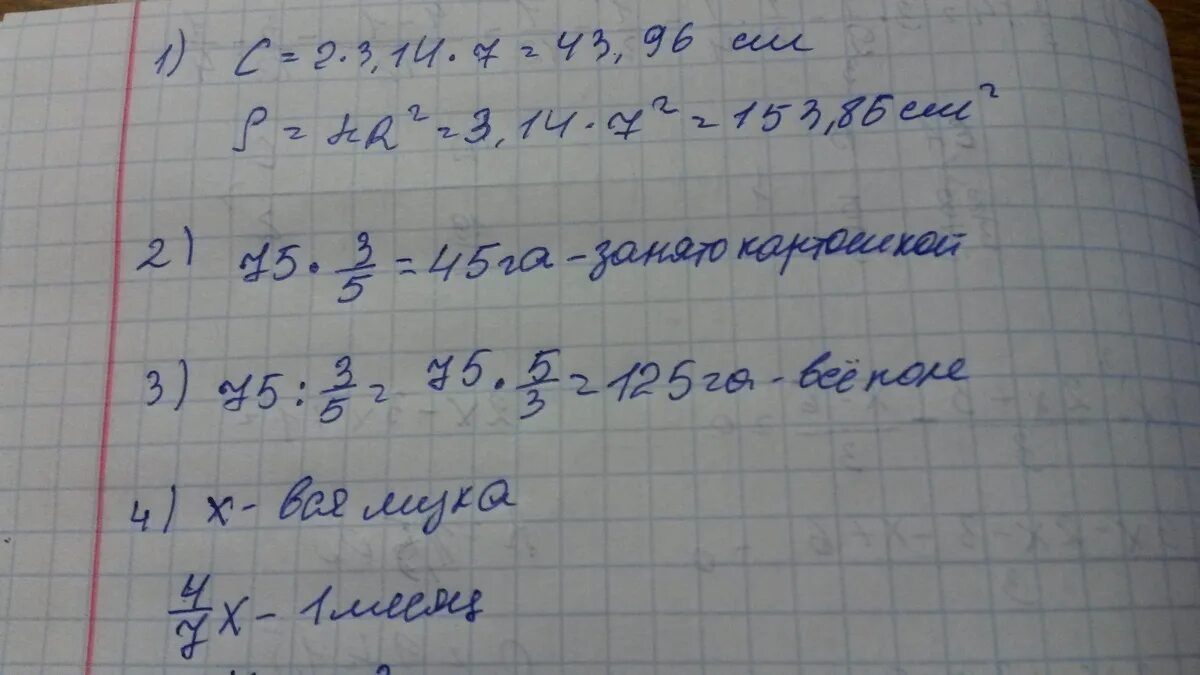 1) C = 2·3,14·7 = 43,96 см
S = πR² = 3,14·7² = 153,86 см²
2) 75 · 3/5 = 45га - занято картошкой
3) 75 : 3/5 = 75 · 5/3 = 125га - всё поле
4) x - вся мука
4/7 x - 1 месяц